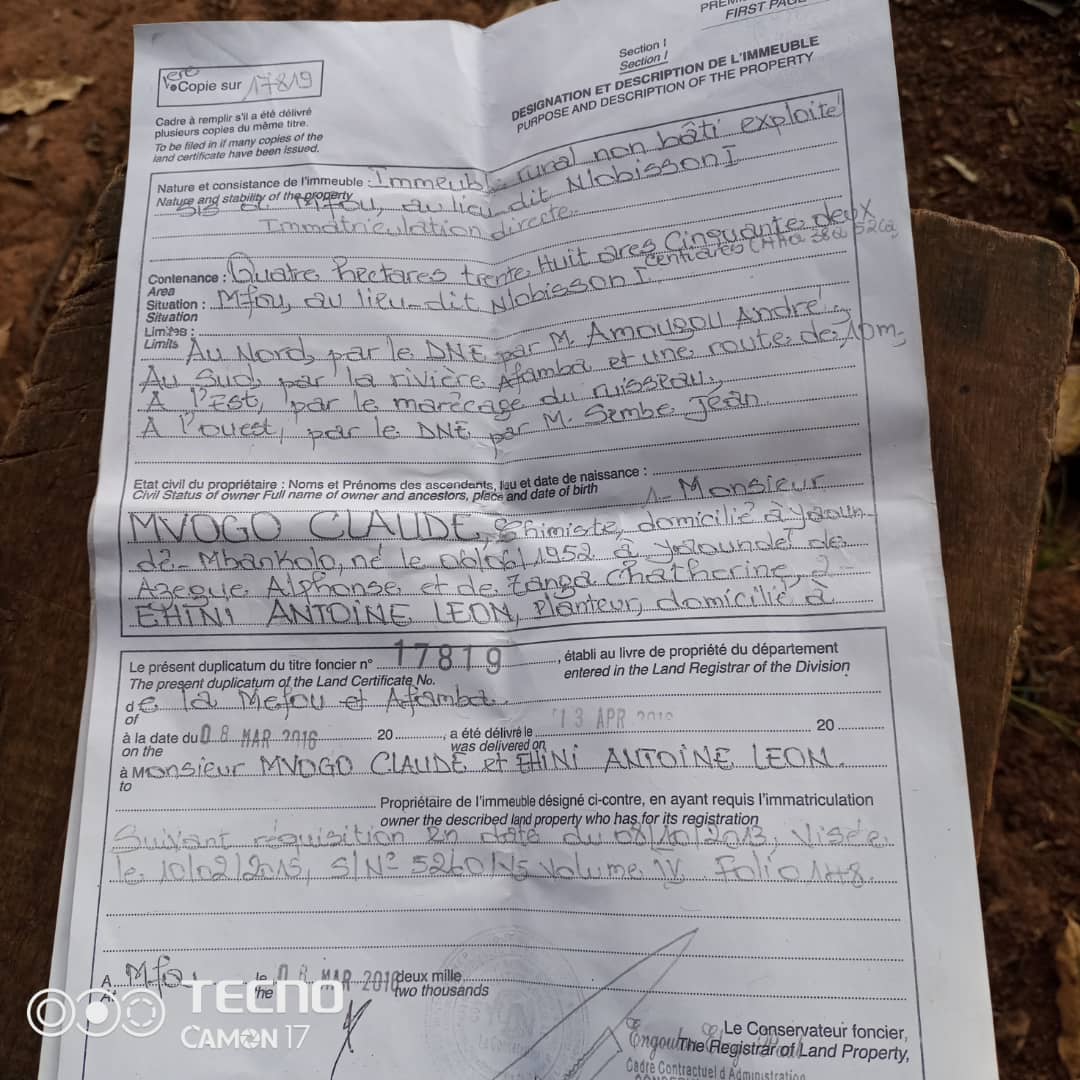 FIRST PAGE
Section I
Section I
DESIGNATION ET DESCRIPTION DE L'IMMEUBLE
PURPOSE AND DESCRIPTION OF THE PROPERTY
1ere Copie sur 17819
Cadre à remplir s'il a été délivré
plusieurs copies du même titre.
To be filed in if many copies of the
land certificate have been issued.
Nature et consistance de l'immeuble : Immeuble rural non bâti exploité
Nature and stability of the property
sis à Mfou, au lieu-dit Nlobisson I
Immatriculation directe.
Contenance : Quatre hectares trente Huit ares Cinquante deux
Area centiares (4Ha 38a 52Ca)
Situation : Mfou, au lieu-dit Nlobisson I.
Situation
Limites :
Limits
Au Nord, par le DNE par M. Amougou André,
Au Sud, par la rivière Afamba et une route de 10m,
A l'Est, par le marécage du ruisseau,
A l'ouest, par le DNE par M. Sembe Jean
Etat civil du propriétaire : Noms et Prénoms des ascendents, lieu et date de naissance :
Civil Status of owner Full name of owner and ancestors, place and date of birth
1- Monsieur
MVOGO CLAUDE, Chimiste, domicilié à Yaoun
dé- Mbankolo, né le 1952 à Yaoundé de
Azegue Alphonse et de Zanga Chatherine, 2-
EHINI ANTOINE LEON, Planteur, domicilié à
Le présent duplicatum du titre foncier n° 17819, établi au livre de propriété du département
The present duplicatum of the Land Certificate No. entered in the Land Registrar of the Division
de la Mefou et Afamba
of
à la date du 08 MAR 2016 20 , a été délivré le 13 APR 2016 20
on the was delivered on
à Monsieur MVOGO CLAUDE et EHINI ANTOINE LEON.
to
Propriétaire de l'immeuble désigné ci-contre, en ayant requis l'immatriculation
owner the described land property who has for its registration
Suivant réquisition en date du 08/10/2013, Visée
le 10/02/2015, S/N° 5260/N5 Volume IV Folio 148.
A Mfou le 08 MAR 2016 deux mille
At the two thousands
Le Conservateur foncier,
The Registrar of Land Property,
Cadre Contractuel d'Administration
TECNO
CAMON 17